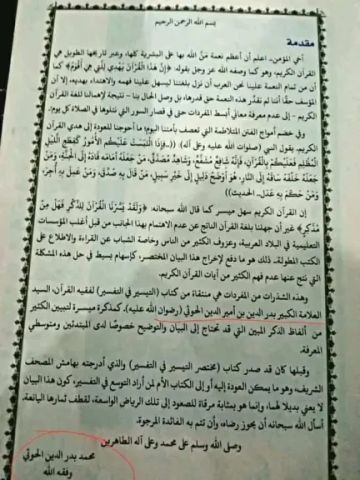 بسم الله الرحمن الرحيم
مقدمة
أخي المؤمن.. اعلم أن أعظم نعمة مَنَّ الله بها على البشرية كلها، وعبر تاريخها الطويل هي
القرآن الكريم، وهو كما وصفه الله عز وجل بقوله: ﴿إِنَّ هَذَا الْقُرْآنَ يَهْدِي لِلَّتِي هِيَ أَقْوَمُ﴾ كما
أن من تمام النعمة علينا نحن العرب أن نزل بلغتنا ليسهل علينا فهمه والاهتداء بهديه، إلا أن
المؤسف حقًا أننا لم نقدّر هذه النعمة حق قدرها، بل وصل الحال بنا – نتيجة لإهمالنا للغة القرآن
الكريم – إلى عدم معرفة معاني أبسط المفردات حتى في قصار السور التي نتلوها في الصلاة كل يوم.
وفي خضم أمواج الفتن المتلاطمة التي تعصف بأمتنا اليوم؛ ما أحوجنا للعودة إلى هدي القرآن
الكريم. يقول النبي (صلوات الله عليه وعلى آله): ((فَإِذَا الْتَبَسَتْ عَلَيْكُم الْأُمُورُ كَقِطَعِ اللَّيْلِ
الْمُظْلِمِ فَعَلَيْكُمْ بِالْقُرْآنِ، فَإِنَّهُ شَافِعٌ مُشَفَّعٌ، وَشَاهِدٌ مُصَدَّقٌ، مَنْ جَعَلَهُ أَمَامَه قَادَهُ إِلَى الْجَنَّةِ، وَمَنْ
جَعَلَهُ خَلْفَه سَاقَه إِلَى النَّارِ، هُوَ أَوْضَحُ دَلِيلٍ إِلَى خَيْرِ سَبِيلٍ، مَنْ قَالَ بِهِ صَدَقَ، وَمَنْ عَمِلَ بِهِ أُجِرَ،
وَمَنْ حَكَمَ بِهِ عَدَلَ.. الحديث))
إن القرآن الكريم سهل ميسر كما قال الله سبحانه: ﴿وَلَقَدْ يَسَّرْنَا الْقُرْآنَ لِلذِّكْرِ فَهَلْ مِنْ
مُدَّكِرٍ﴾ غير أن جهلنا بلغة القرآن الناتج عن عدم الاهتمام بهذا الجانب من قبل أغلب المؤسسات
التعليمية في البلاد العربية، وعزوف الكثير من الناس وخاصة الشباب عن القراءة والاطلاع على
الكتب المطولة، ذلك هو ما دفع لإخراج هذا البيان المختصر، كإسهام بسيط في حل هذه المشكلة
التي نتج عنها عدم فهم الكثير من آيات القرآن الكريم.
وهذه الشذرات من المفردات هي منتقاة من كتاب (التيسير في التفسير) لفقيه القرآن، السيد
العلامة الكبير بدر الدين بن أمير الدين الحوثي (رضوان الله عليه)، كمذكرة ميسرة لتبيين الكثير
من ألفاظ الذكر المبين التي قد تحتاج إلى البيان والتوضيح خصوصًا لدى المبتدئين ومتوسطي
المعرفة.
وقبلها كان قد صدر كتاب (مختصر التيسير في التفسير) والذي أدرجته بهامش المصحف
الشريف، وهو ما يمكن العودة إليه أو إلى الكتاب الأم لمن أراد التوسع في التفسير، كون هذا البيان
لا يعني بديلا لهما، وإنما هو بمثابة مرقاة للصعود إلى تلك الرياض الواسعة، لقطف ثمارها اليانعة.
أسأل الله سبحانه أن يحوز رضاه، وأن تتم به الفائدة المرجوة.
وصلى الله وسلم على محمد وعلى آله الطاهرين
محمد بدر الدين الحوثي
وفقه الله